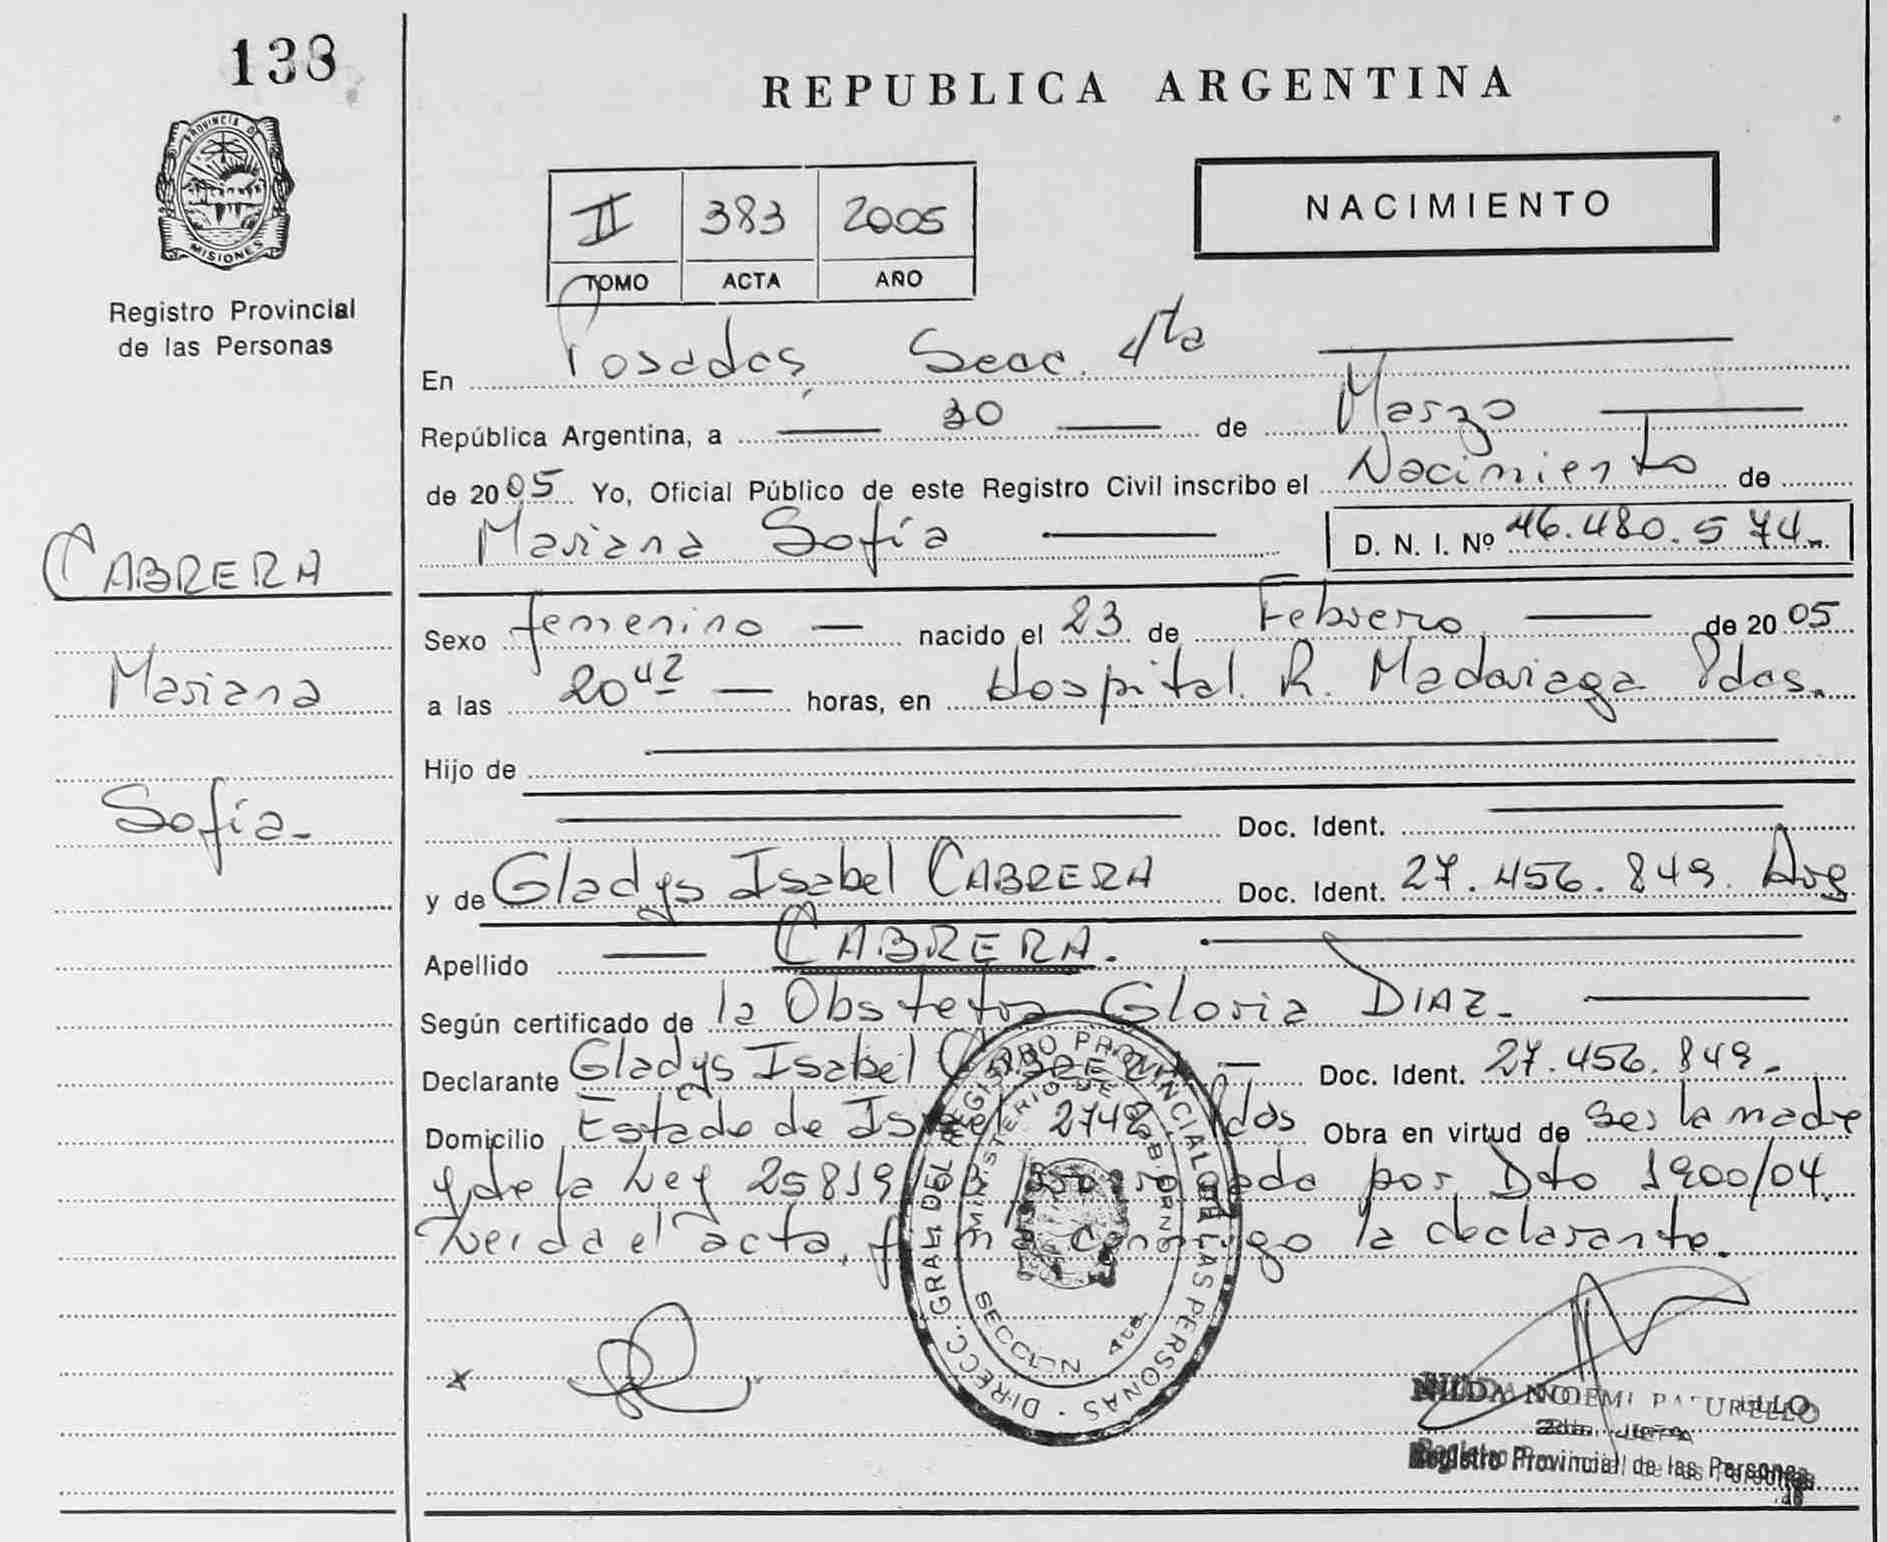 138
PROVINCIA DE
MISIONES
Registro Provincial
de las Personas
CABRERA
Mariana
Sofía-
REPUBLICA ARGENTINA
II 383 2005
TOMO ACTA AÑO
NACIMIENTO
En Posadas, Secc. 4ta
República Argentina, a 30 de Marzo
de 2005 Yo, Oficial Público de este Registro Civil inscribo el Nacimiento de
Mariana Sofía D. N. I. Nº 46.480.574-
Sexo femenino nacido el 23 de Febrero de 2005
a las 20 42 horas, en Hospital R. Madariaga Pdas.
Hijo de
Doc. Ident.
y de Gladys Isabel CABRERA Doc. Ident. 27.456.849. Arg
Apellido CABRERA.
Según certificado de la Obstetra Gloria DIAZ-
Declarante Gladys Isabel CABRERA Doc. Ident. 27.456.849-
Domicilio Estado de Israel 2742 Pdas Obra en virtud de ser la madre
y de la Ley 25819/03 prorrogado por Dto 1900/04.
Leida el acta, firma conmigo la declarante.
DIRECC. GRAL. DEL REGISTRO PROVINCIAL DE LAS PERSONAS
MINISTERIO DE GOBIERNO
SECCION 4ta.
x
NILDA NOEMI
Registro Provincial de las Personas